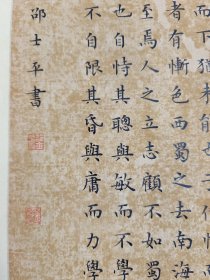 而下猶未能也
者有慚色西蜀之去南海
至焉人之立志顧不如蜀
也自恃其聰與敏而不學
不自限其昏與庸而力學
邵士平書